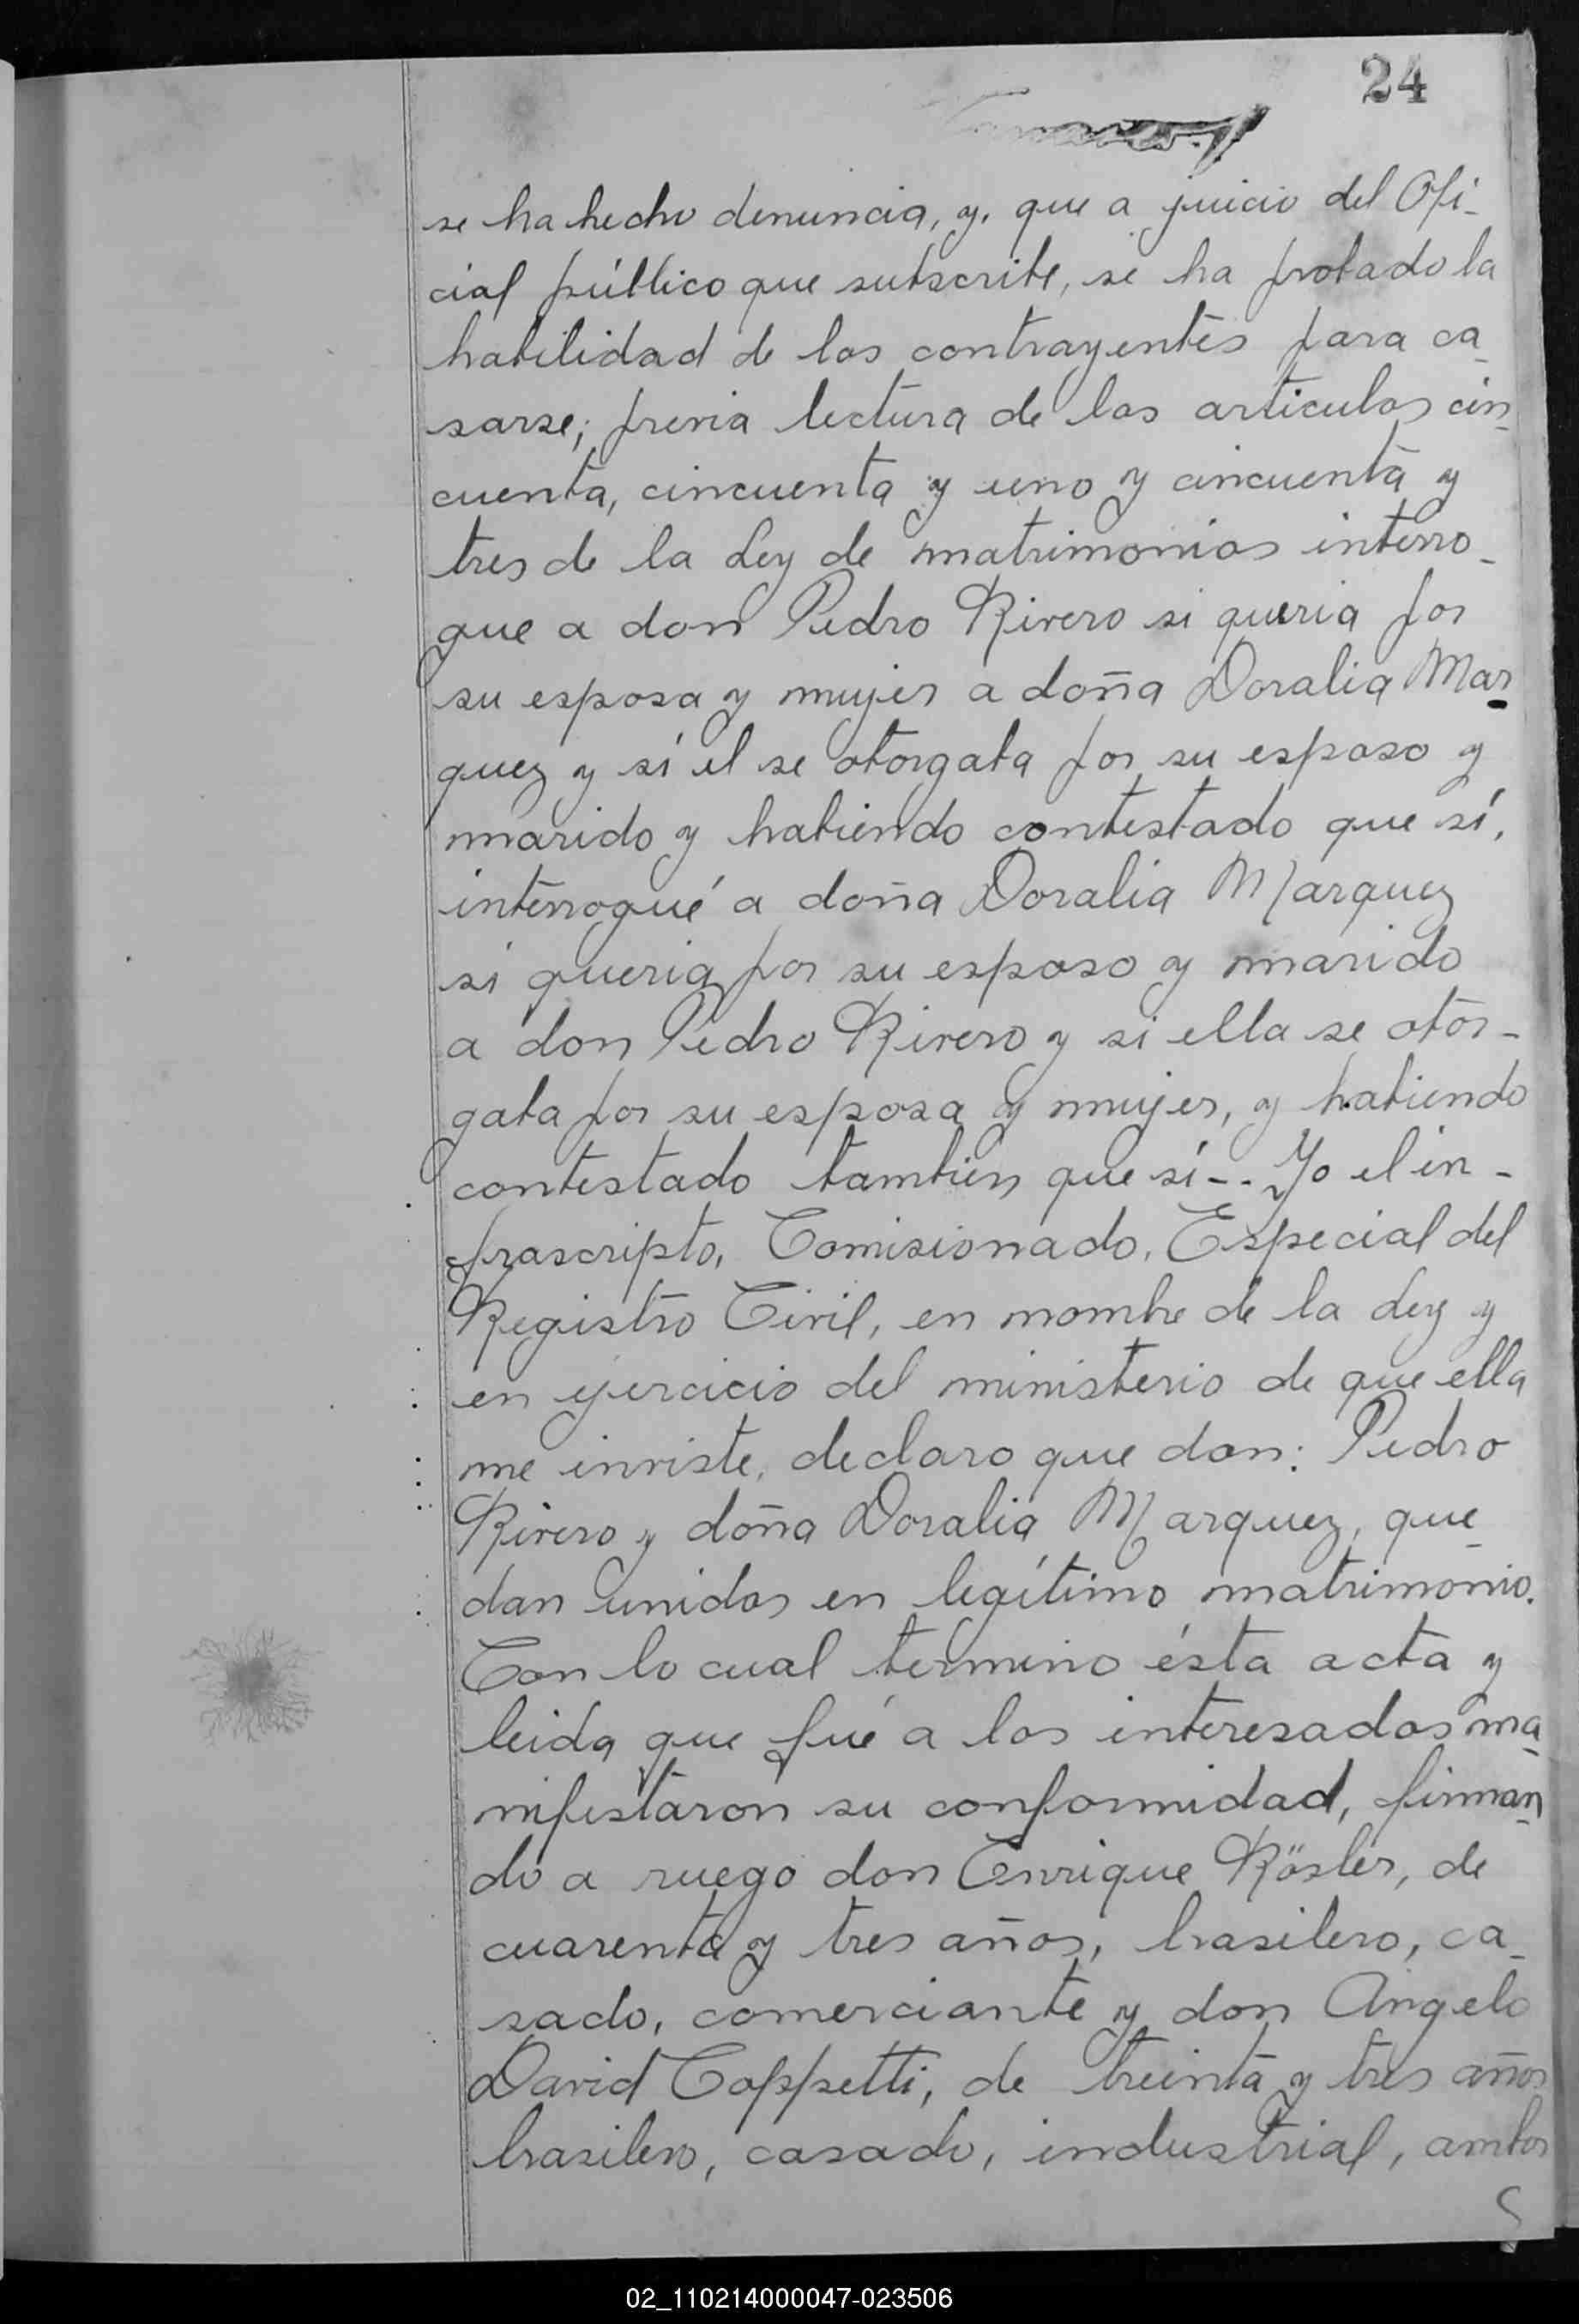 24
se ha hecho denuncia, y. que a juicio del Ofi-
cial público que subscribe, se ha probado la
habilidad de los contrayentes para ca-
sarse; previa lectura de los articulos cin-
cuenta, cincuenta y uno y cincuenta y
tres de la Ley de matrimonios interro-
gue a don Pedro Rivero si queria por
su esposa y mujer a doña Doralia Mar-
quez y si el se otorgaba por su esposo y
marido y habiendo contestado que sí,
interrogué a doña Doralia Marquez
si queria por su esposo y marido
a don Pedro Rivero y si ella se otor-
gaba por su esposa y mujer, y habiendo
contestado tambien que sí-.. Yo el in-
frascripto, Comisionado, Especial del
Registro Civil, en nombre de la Ley y
en ejercicio del ministerio de que ella
me inviste, declaro que don: Pedro
Rivero y doña Doralia Marquez, que-
dan unidos en legítimo matrimonio.
Con lo cual termino ésta acta y
leida que fué a los interesados ma-
nifestaron su conformidad, firman-
do a ruego don Enrique Rösler, de
cuarenta y tres años, brasilero, ca-
sado, comerciante y don Angelo
David Coppetti, de treinta y tres años
brasilero, casado, industrial, ambos
02_110214000047-023506